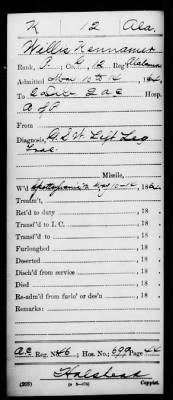 K 12 Ala.
Willis Kennamer
Rank, P. Co. G, 12 Reg't Alabama
Admitted May 10 to 14, 1864.
To 2 A C Hosp.
A of P
From
Diagnosis, G. S. W. Left Leg
Frac.
Missile,
W'd Spottsylvania May 10-14, 1864.
Treatm't,
Ret'd to duty , 18
Transf'd to I. C. , 18
Transf'd to , 18
Furloughed , 18
Deserted , 18
Disch'd from service , 18
Died , 18
Re-adm'd from furlo' or des'n , 18
Remarks:
A C Reg. No. 46; Hos. No. 692 Page 44
Halstead
(203) Copyist.